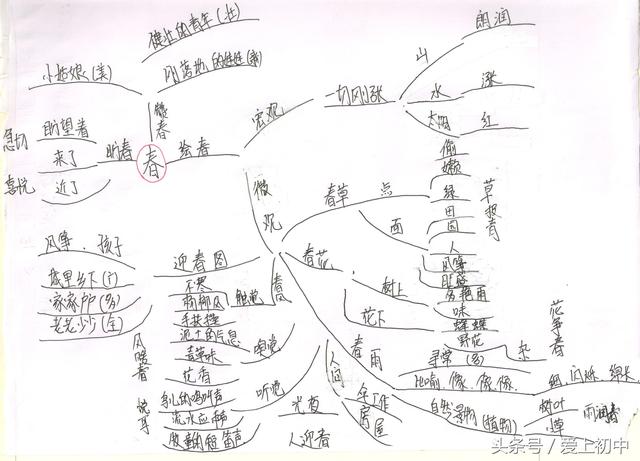 健壮的青年(壮)
刚落地的娃娃(新)
小姑娘(美)
赞春
急切
盼望着
来了
喜悦
近了
盼春
春
绘春
宏观
一切刚张
山
朗润
水
涨
太阳
红
微观
春草
点
偷
嫩
绿
面
田
园
草报青
人
春花
树上
花下
味
蝴蝶
野花
杂
花争春
春风
触觉
不寒
杨柳风
手抚摸
嗅觉
泥土的气息
青草味
花香
听觉
鸟儿的鸣叫声
流水应和声
牧童的短笛声
风暖春
悦耳
春雨
寻常(多)
比喻 像、像、像、
细、闪烁、绵长
自然景物(植物)
树叶
小草
雨润春
人间
工作
房屋
光夜
人迎春
迎春图
风筝、孩子
城里乡下(广)
家家户户(多)
老老少少(全)
头条号/爱上初中